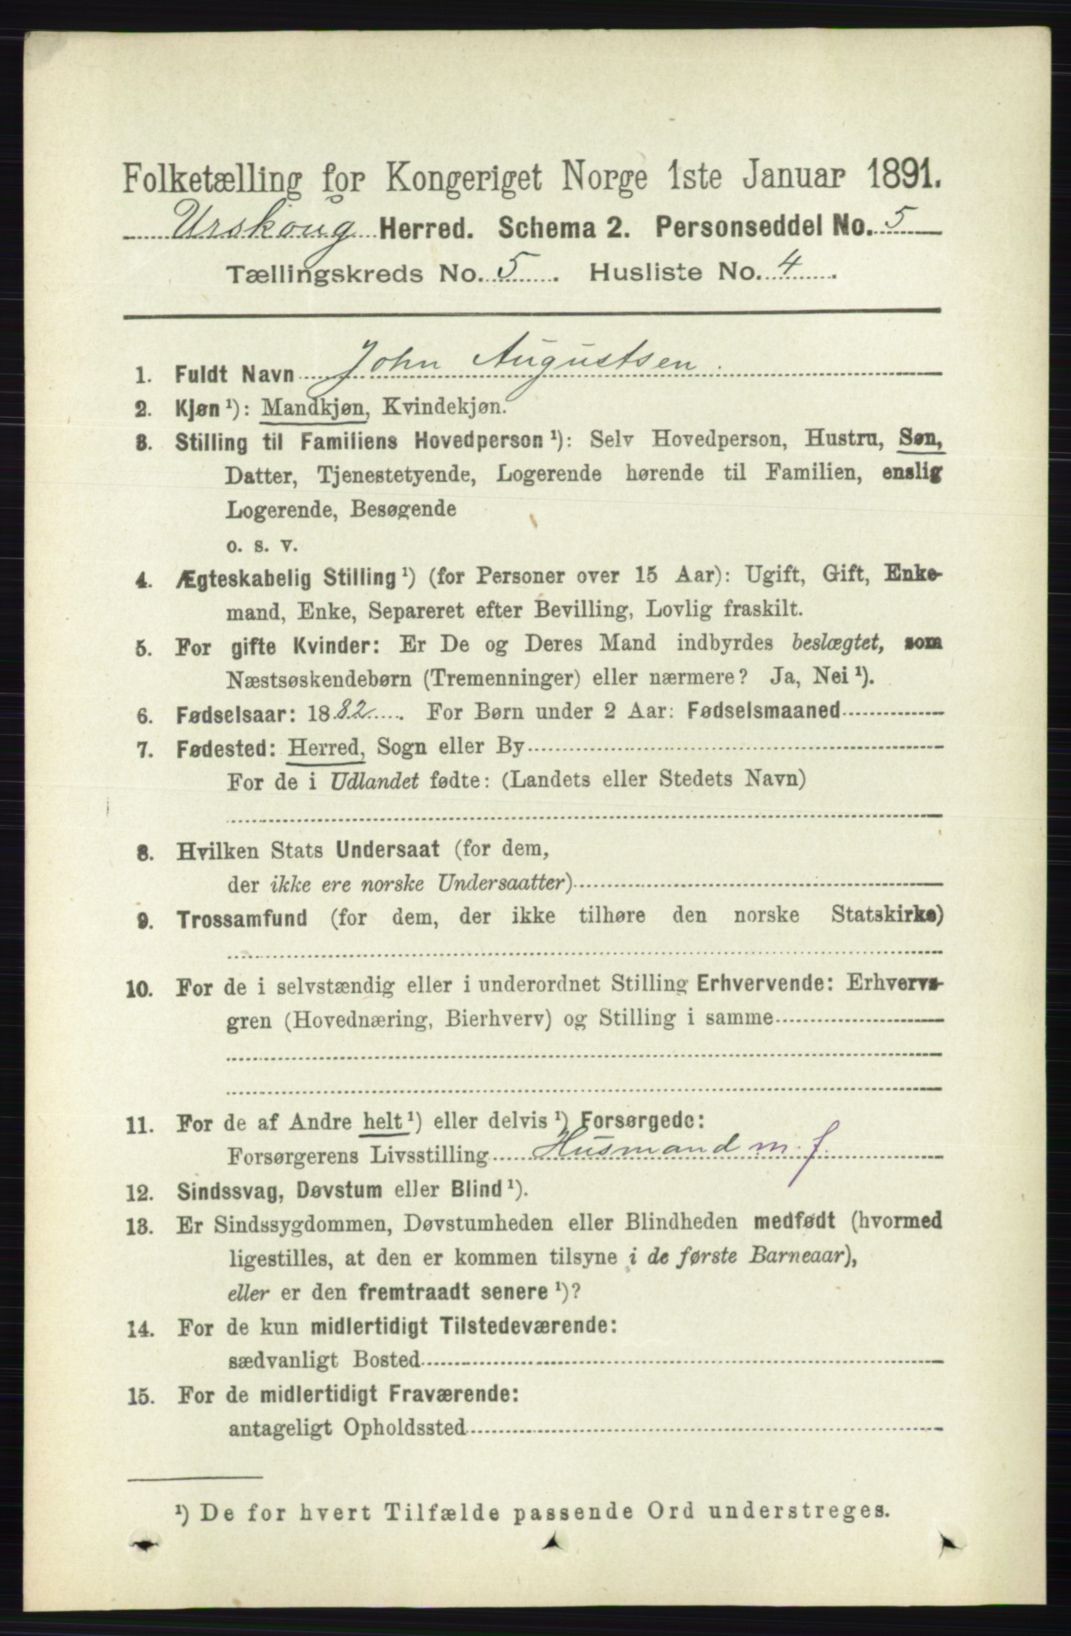 Folketælling for Kongeriget Norge 1ste Januar 1891.
Urskoug Herred. Schema 2. Personseddel No. 5
Tællingskreds No. 5. Husliste No. 4.
1. Fuldt Navn John Augustsen.
2. Kjøn ¹): Mandkjøn, Kvindekjøn.
3. Stilling til Familiens Hovedperson ¹): Selv Hovedperson, Hustru, Søn,
Datter, Tjenestetyende, Logerende hørende til Familien, enslig
Logerende, Besøgende
o. s. v.
4. Ægteskabelig Stilling ¹) (for Personer over 15 Aar): Ugift, Gift, Enke-
mand, Enke, Separeret efter Bevilling, Lovlig fraskilt.
5. For gifte Kvinder: Er De og Deres Mand indbyrdes beslægtet, som
Næstsøskendebørn (Tremenninger) eller nærmere? Ja, Nei ¹).
6. Fødselsaar: 1882. For Børn under 2 Aar: Fødselsmaaned
7. Fødested: Herred, Sogn eller By
For de i Udlandet fødte: (Landets eller Stedets Navn)
8. Hvilken Stats Undersaat (for dem,
der ikke ere norske Undersaatter)
9. Trossamfund (for dem, der ikke tilhøre den norske Statskirke)
10. For de i selvstændig eller i underordnet Stilling Erhvervende: Erhvervs-
gren (Hovednæring, Bierhverv) og Stilling i samme
11. For de af Andre helt ¹) eller delvis ¹) Forsørgede:
Forsørgerens Livsstilling Husmand m. j.
12. Sindssvag, Døvstum eller Blind ¹).
13. Er Sindssygdommen, Døvstumheden eller Blindheden medfødt (hvormed
ligestilles, at den er kommen tilsyne i de første Barneaar),
eller er den fremtraadt senere ¹)?
14. For de kun midlertidigt Tilstedeværende:
sædvanligt Bosted
15. For de midlertidigt Fraværende:
antageligt Opholdssted
¹) De for hvert Tilfælde passende Ord understreges.